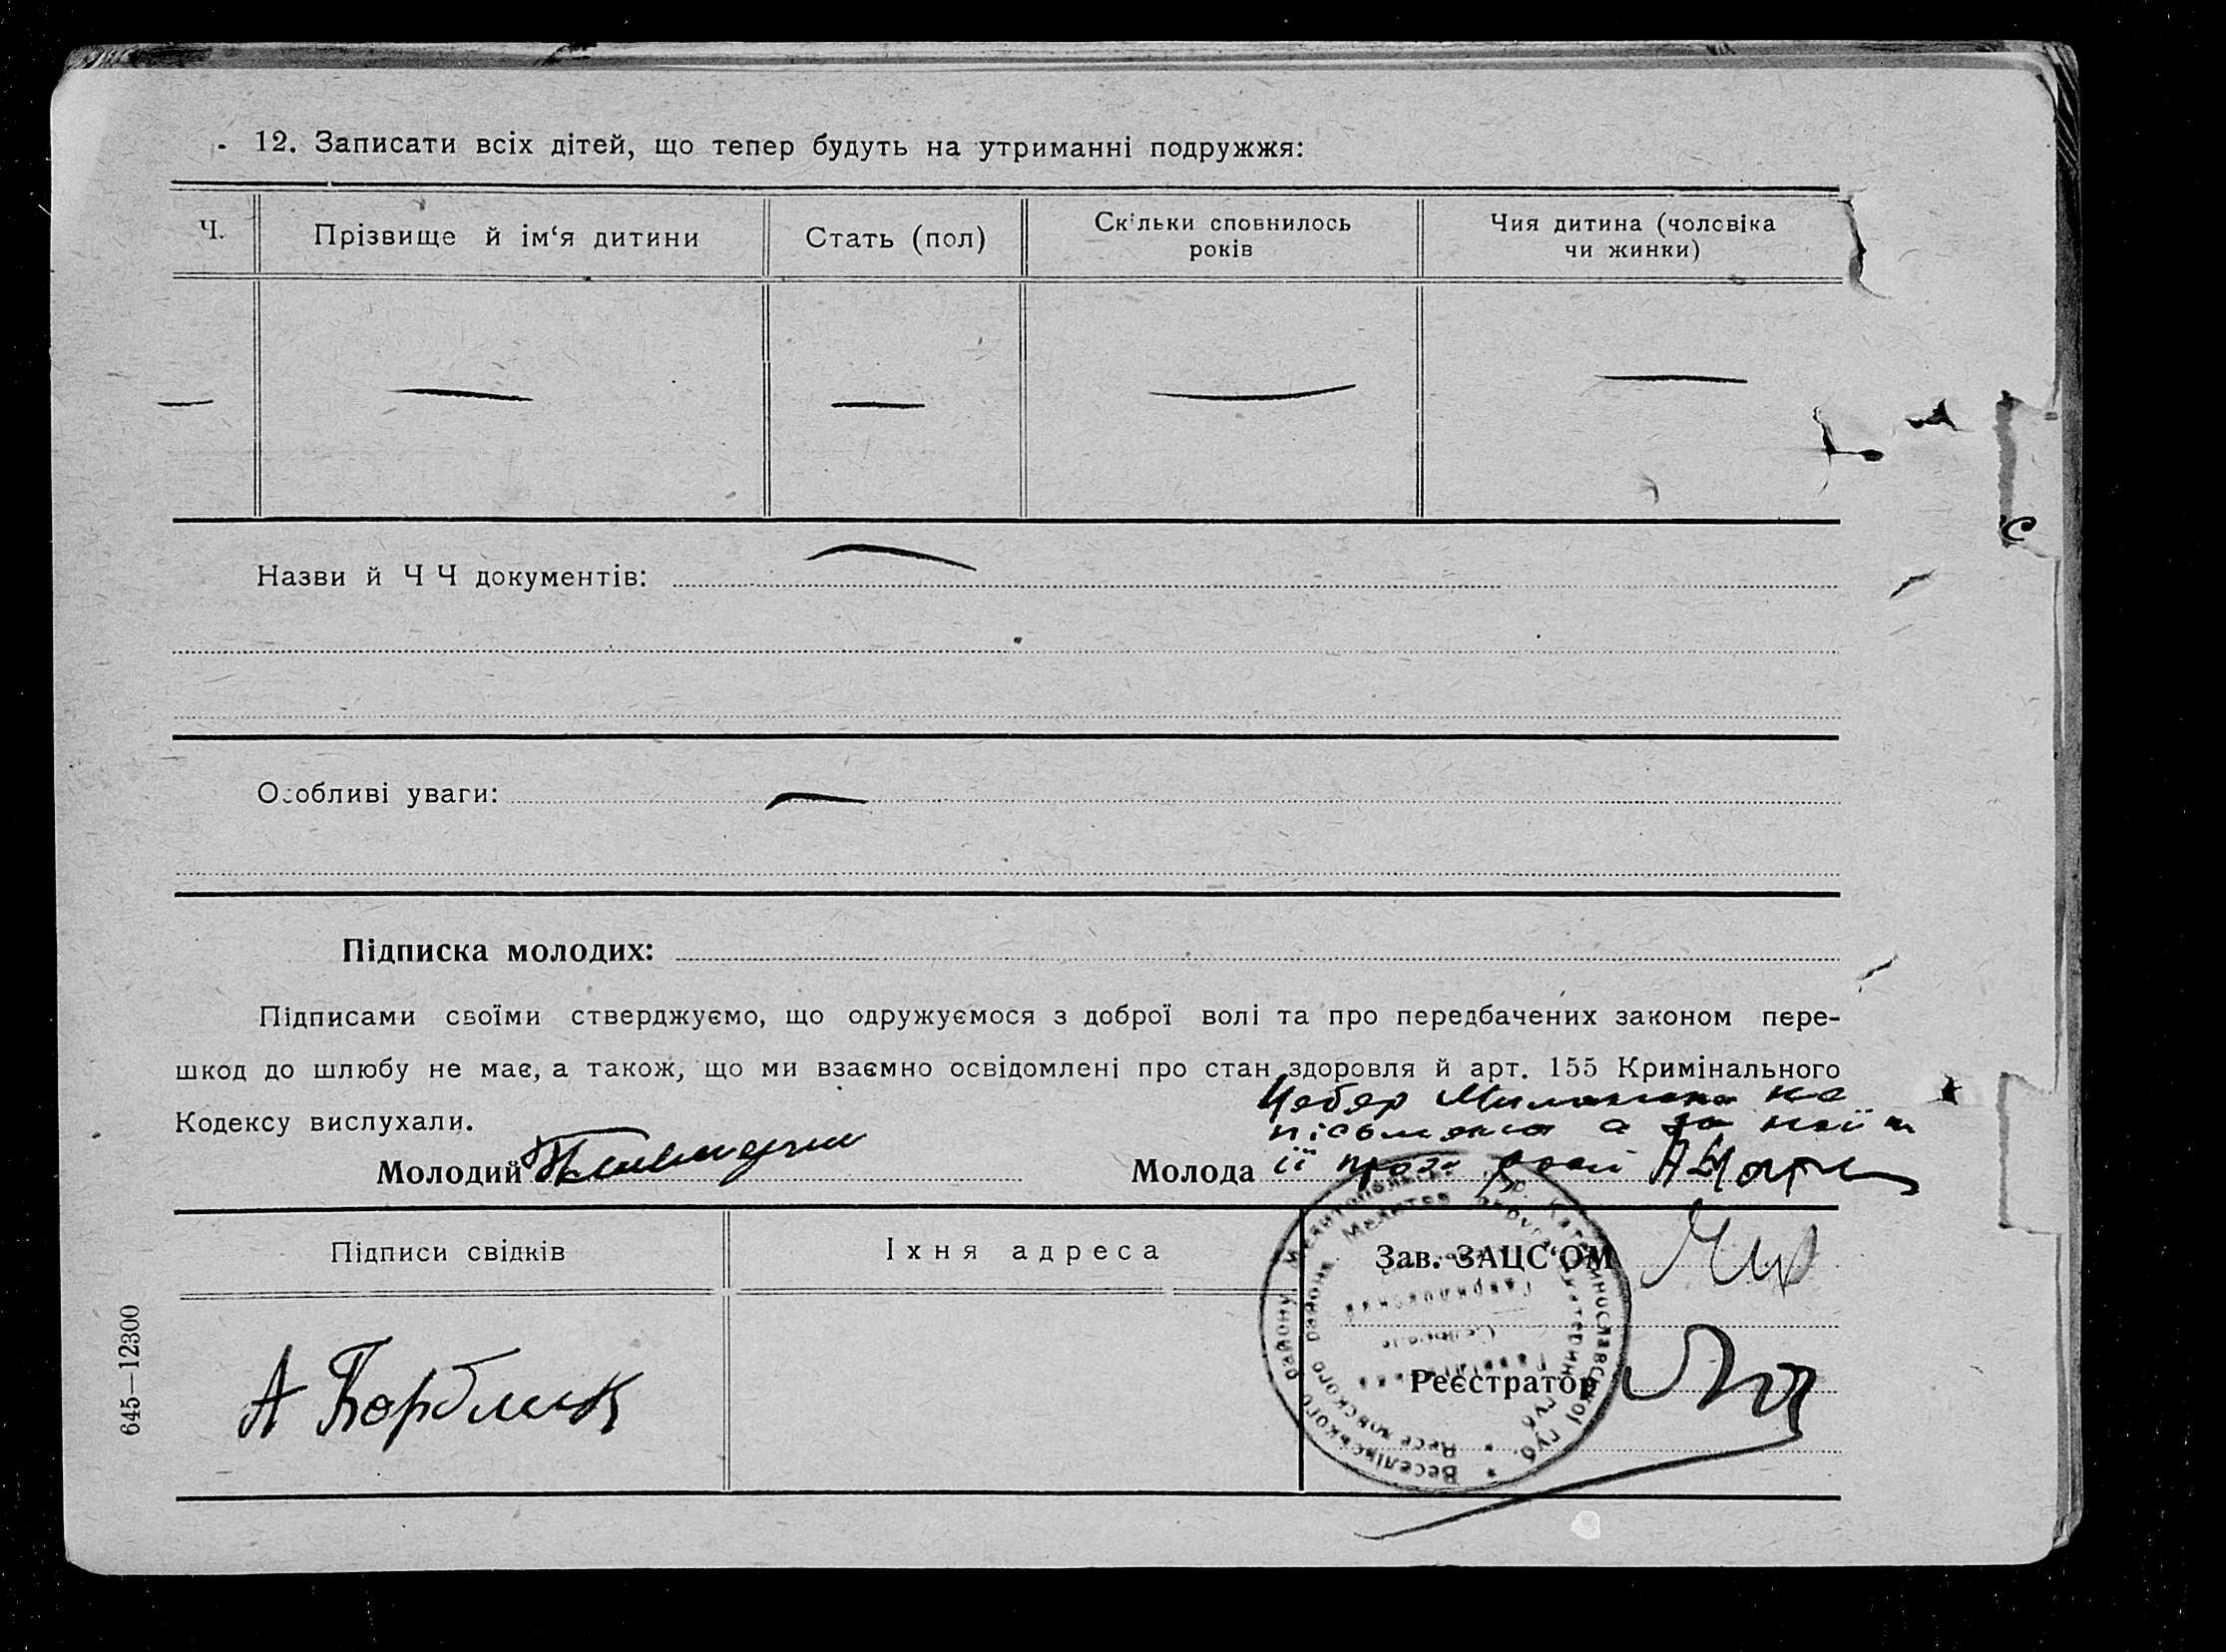 12. Записати всіх дітей, що тепер будуть на утриманні подружжя:
Ч.
Прізвище й ім‘я дитини
Стать (пол)
Скільки сповнилось
років
Чия дитина (чоловіка
чи жинки)
Назви й Ч Ч документів:
Особливі уваги:
Підписка молодих:
Підписами своїми стверджуємо, що одружуємося з доброї волі та про передбачених законом пере-
шкод до шлюбу не має, а також, що ми взаємно освідомлені про стан здоровля й арт. 155 Кримінального
Кодексу вислухали.
Молодий
Молода
її
Підписи свідків
Їхня адреса
Зав. ЗАЦС‘ОМ
Реєстратор
А
Веселівського району
губ.
645—12300